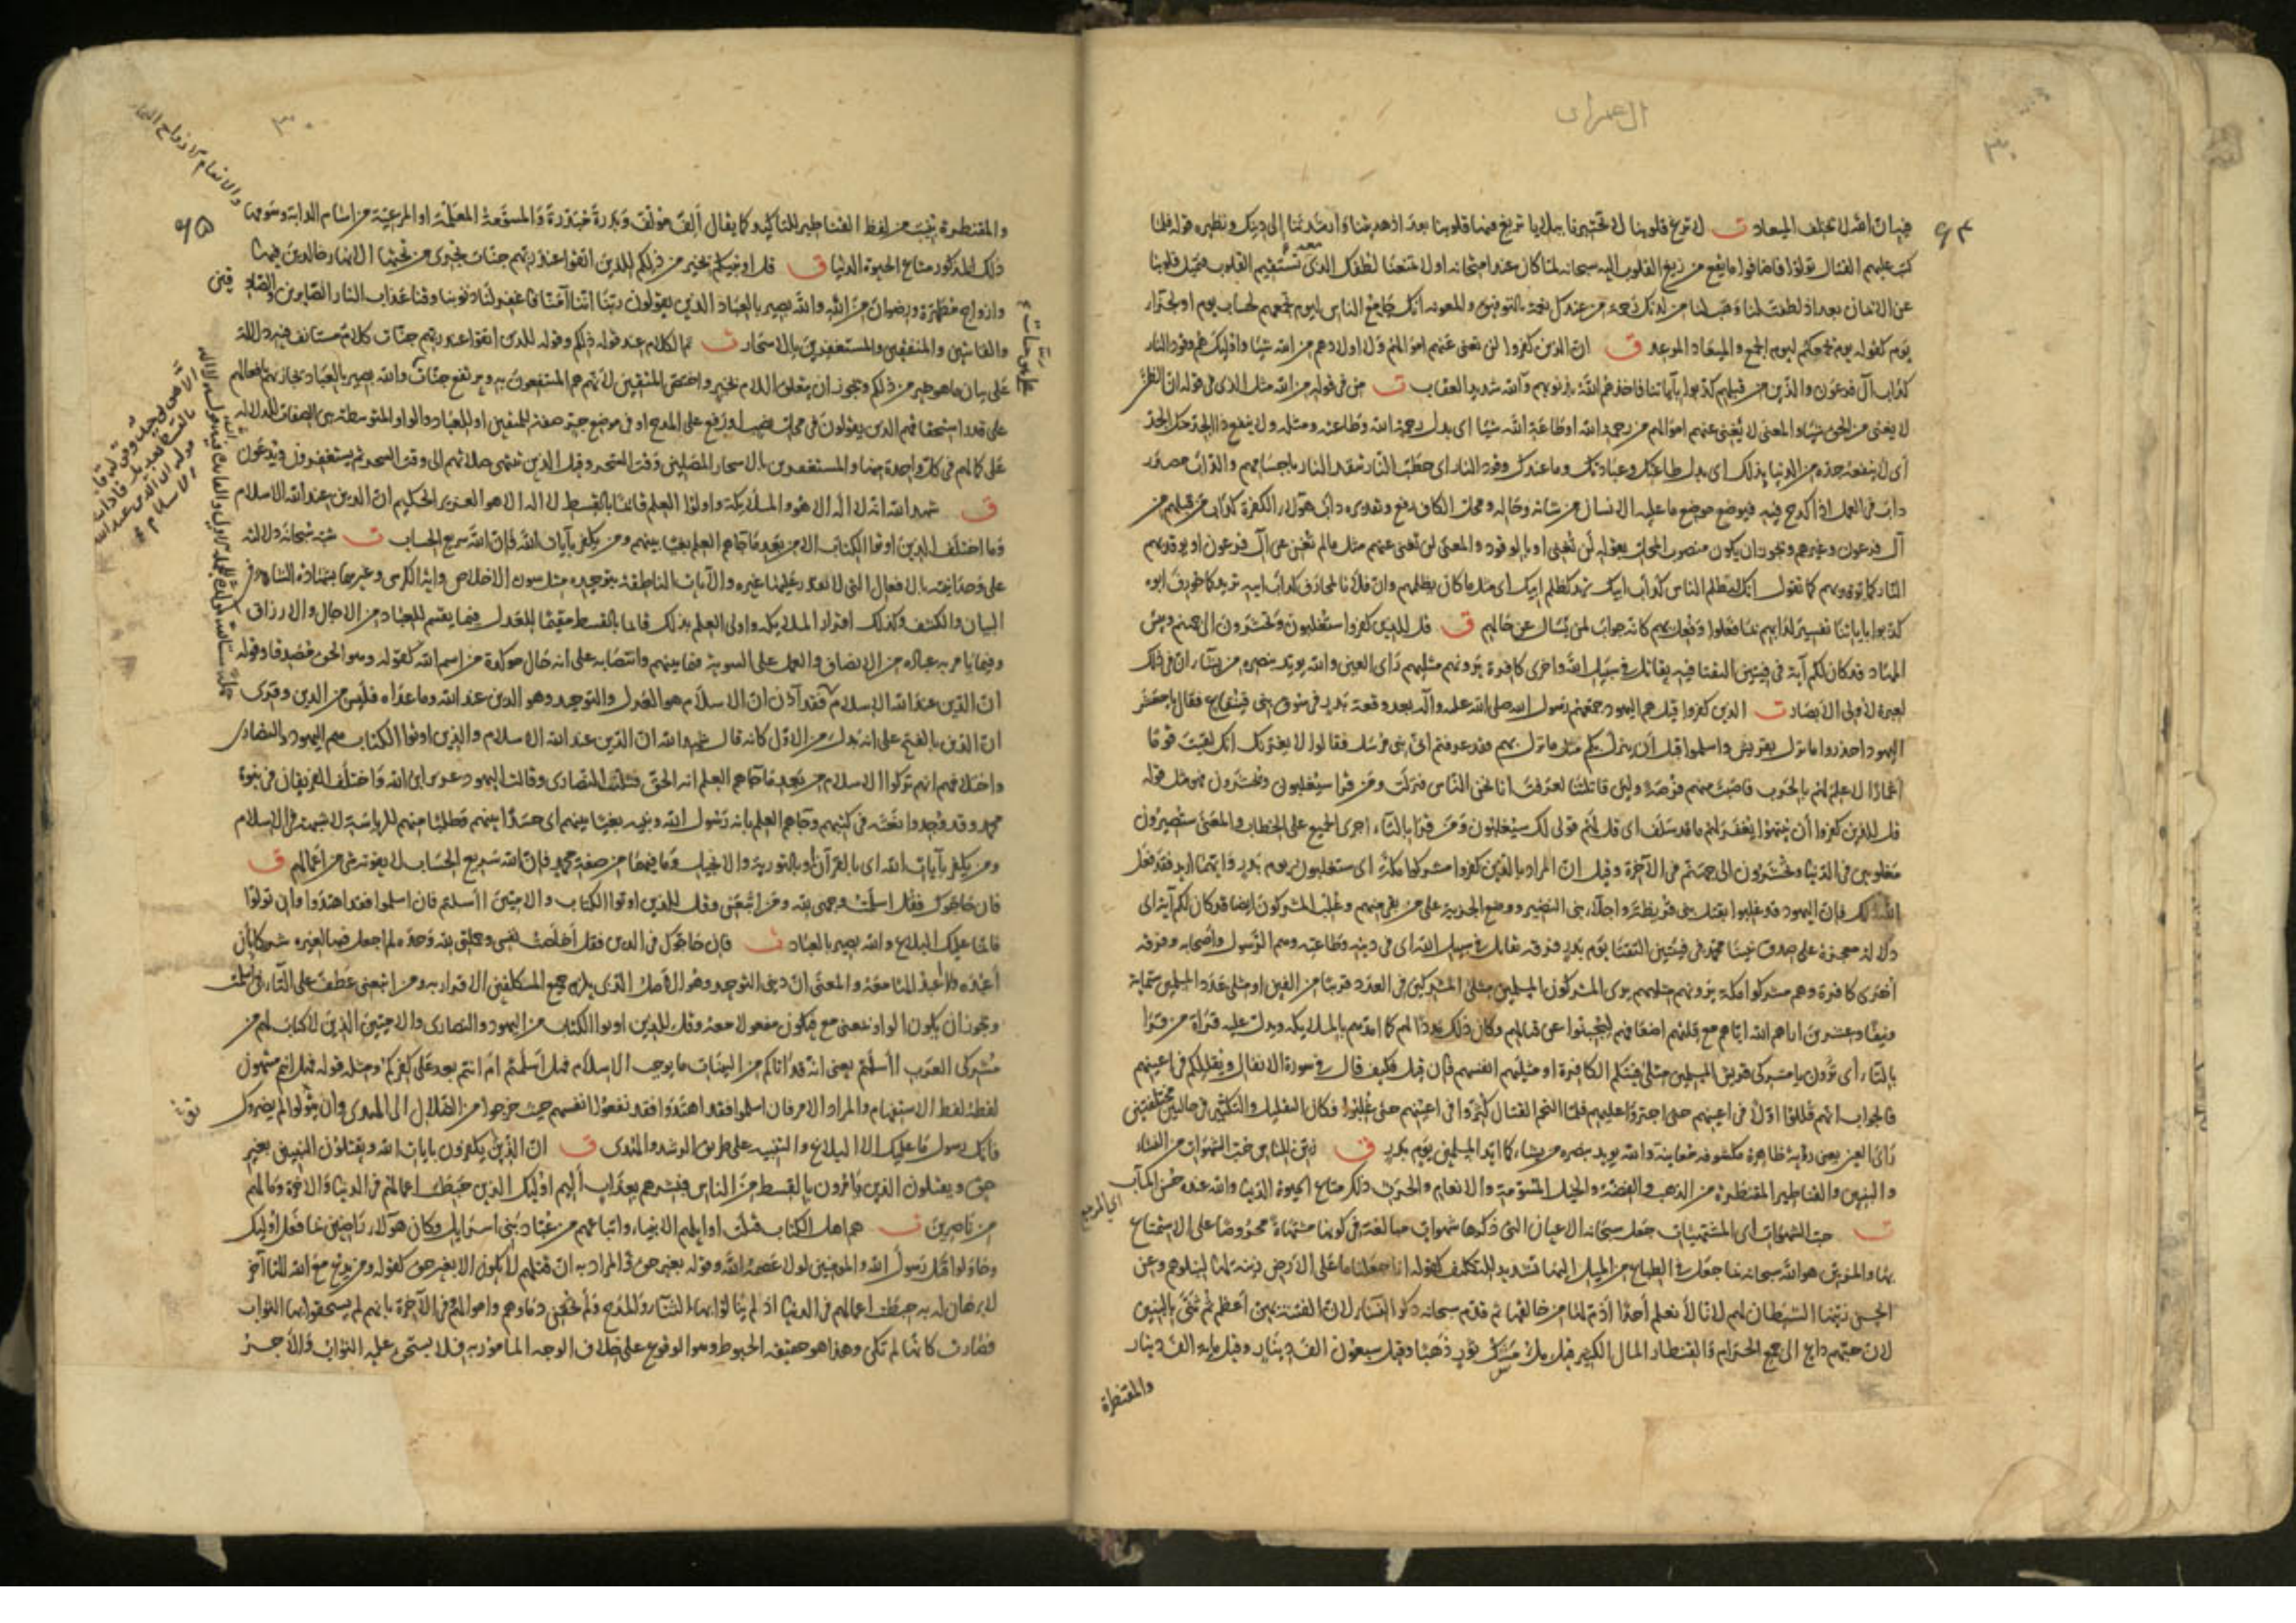 ال عمران
فيه ان الله لا يخلف الميعاد ت لا تزغ قلوبنا لا تختبرنا ببلايا تزيغ فيها قلوبنا بعد اذ هديتنا وارشدتنا إلى دينك ونظيره قوله فلما
كتب عليهم القتال تولوا فاضافوا ما يقع من زيغ القلوب اليه سبحانه لما كان عند امتحانه اولا تمنعنا لطفك الذى تستقيم القلوب فتميل قلوبنا
عن الايمان بعد اذ لطفت لنا وهب لنا من لدنك رحمة من عندك نعمة بالتوفيق والمعونه انك جامع الناس ليوم تجمعهم لحساب يوم او لجزاء
يوم كقوله يوم يجمعكم ليوم الجمع والميعاد الموعد ق ان الذين كفروا لن تغنى عنهم اموالهم ولا اولادهم من الله شيئا واولئك هم وقود النار
كداب آل فرعون والذين من قبلهم كذبوا بآياتنا فاخذهم الله بذنوبهم والله شديد العقاب ت من فى قوله من الله مثل الذى فى قوله ان الظن
لا يغنى من الحق شيئا والمعنى لا يغنى عنهم اموالهم من رحمة الله او طاعة الله شيئا اى بدل رحمة الله وطاعته ومثله ولا ينفع ذا الجد منك الجد
اى لا ينفعه جده من الدنيا بذلك اى بدل طاعتك وعبادتك وما عندك وقود النار اى حطب النار تتقد النار باجسامهم والداب مصدر
داب فى العمل اذا كدح فيه فوضع موضع ما عليه الانسان من شانه وحاله ومحل الكاف رفع وتقديره داب هؤلاء الكفرة كداب من قبلهم من
آل فرعون وغيرهم ويجوز ان يكون منصوب المحل بقوله لن تغنى او بالوقود والمعنى لن تغنى عنهم مثل مالم تغن عن آل فرعون او يوقد بهم
النار كما توقد بهم كما تقول انك لتظلم الناس كداب ابيك تريد كظلم ابيك اى مثل ما كان يظلمهم وان فلانا لمحارف كداب ابيه تريد كما حورف ابوه
كذبوا باياتنا تفسير لدابهم مما فعلوا وفعل بهم كانه جواب لمن يسال عن حالهم ق قل للذين كفروا ستغلبون وتحشرون الى جهنم وبئس
المهاد قد كان لكم آية فى فئتين التقتا فئة تقاتل فى سبيل الله واخرى كافرة يرونهم مثليهم راى العين والله يويد بنصره من يشاء ان فى ذلك
لعبرة لاولى الابصار ت الذين كفروا قيل هم اليهود جمعهم رسول الله صلى الله عليه وآله بعد وقعة بدر فى سوق بنى قينقاع فقال يا معشر
اليهود احذروا ما نزل بقريش واسلموا قبل ان ينزل بكم مثل ما نزل بهم وقد عرفتم انى نبى مرسل فقالوا لا يغرنك انك لقيت قوما
اغمارا لا علم لهم بالحرب فاصبت منهم فرصة ولئن قاتلتنا لعرفت انا نحن الناس فنزلت ومن قرا سيغلبون ويحشرون فهو مثل قوله
قل للذين كفروا ان ينتهوا يغفر لهم ما قد سلف اى قل لهم قولى لك سيغلبون ومن قرا بالتاء اجرى الجميع على الخطاب والمعنى ستصيرون
مغلوبين فى الدنيا وتحشرون الى جهنم فى الآخرة وقيل ان المراد بالذين كفروا مشركوا مكة اى ستغلبون يوم بدر وايهما اريد فقد فعل
الله ذلك فان اليهود قد غلبوا بقتل بنى قريظة واجلاء بنى النضير ووضع الجزية على من بقى منهم وغلب المشركون ايضا قد كان لكم آية اى
دلالة معجزة على صدق نبينا محمد فى فئتين التقتا يوم بدر فرقة تقاتل فى سبيل الله اى فى دينه وطاعته وهم الرسول واصحابه وفرقة
اخرى كافرة وهم مشركوا مكة يرونهم مثليهم يرى المشركون المسلمين مثلى المشركين فى العدد قريبا من الفين او مثلى عدد المسلمين ستماية
ونيفا وعشرين اراهم الله اياهم مع قلتهم اضعافهم ليجبنوا عن قتالهم وكان ذلك مددا لهم كما امدهم بالملايكة ويدل عليه قراة من قرا
بالتاء اى ترون يا مشركى قريش المسلمين مثلى فئتكم الكافرة او مثليهم انفسهم فان قيل فكيف قال فى سورة الانفال ويقللكم فى اعينهم
فالجواب انهم قللوا اولا فى اعينهم حتى اجترؤا عليهم فلما التحم القتال كثروا فى اعينهم حتى غلبوا فكان التقليل والتكثير فى حالين مختلفتين
راى العين يعنى رؤية ظاهرة مكشوفة معاينة والله يويد بنصره من يشاء كما ايد المسلمين يوم بدر ق زين للناس حب الشهوات من النساء
والبنين والقناطير المقنطرة من الذهب والفضة والخيل المسومة والانعام والحرث ذلك متاع الحيوة الدنيا والله عنده حسن المآب
اى المرجع
ت حب الشهوات اى المشتهيات جعل سبحانه الاعيان التى ذكرها شهوات مبالغة فى كونها مشتهاة محروصا على الاستمتاع
بها والمزين هو الله سبحانه بما جعل فى الطباع من الميل اليها تشديد للتكليف كقوله انا جعلنا ما على الارض زينة لها لنبلوهم وعن
الحسن زينها الشيطان لهم لانا لا نعلم احدا اذم لها من خالقها ثم قدم سبحانه ذكر النساء لان الفتنة بهن اعظم ثم ثنى بالبنين
لان حبهم داع الى جمع الحرام والقنطار المال الكثير قيل ملء مسك ثور ذهبا وقيل سبعون الف دينار وقيل ماية الف دينار
والمقنطرة
والمقنطرة بنيت من لفظ القناطير للتاكيد كما يقال الف مؤلف وبدرة مبدرة والمسومة المعلمة او المرعية من اسام الدابة وسومها
والانعام الازواج الثمانية
ذلك المذكور متاع الحيوة الدنيا ق قل اؤنبئكم بخير من ذلكم للذين اتقوا عند ربهم جنات تجرى من تحتها الانهار خالدين فيها
وازواج مطهرة ورضوان من الله والله بصير بالعباد الذين يقولون ربنا اننا آمنا فاغفر لنا ذنوبنا وقنا عذاب النار الصابرين والصادقين
والقانتين والمنفقين والمستغفرين بالاسحار ت تم الكلام عند قوله ذلكم وقوله للذين اتقوا عند ربهم جنات كلام مستانف فيه دلالة
على بيان ما هو خير من ذلكم ويجوز ان يتعلق اللام بخير واختص المتقين لانهم هم المنتفعون به ويرتفع جنات والله بصير بالعباد يجازيهم بافعالهم
على قدر استحقاقهم الذين يقولون فى محل نصب او رفع على المدح او فى موضع جر صفة للمتقين او للعباد والواو المتوسطة بين الصفات للدلالة
على كمالهم فى كل واحدة منها والمستغفرين بالاسحار المصلين وقت السحر وقيل الذين تنتهى صلاتهم الى وقت السحر ثم يستغفرون ويدعون
ق شهد الله انه لا اله الا هو والملايكة واولوا العلم قائما بالقسط لا اله الا هو العزيز الحكيم ان الدين عند الله الاسلام
وما اختلف الذين اوتوا الكتاب الا من بعد ما جاءهم العلم بغيا بينهم ومن يكفر بآيات الله فان الله سريع الحساب ت شبه سبحانه دلالته
على وحدانيته بالافعال التى لا يقدر عليها غيره والآيات الناطقة بتوحيده مثل سورة الاخلاص واية الكرسى وغيرهما بشهادة الشاهد فى
البيان والكشف وكذلك اقرار الملايكة واولى العلم بذلك قائما بالقسط مقيما للعدل فيما يقسم للعباد من الاجال والارزاق
وفيما يامر به عباده من الانصاف والعمل على السوية فيما بينهم وانتصابه على انه حال موكدة من اسم الله كقوله وهو الحق مصدقا وقوله
ان الدين عند الله الاسلام فقد آذن ان الاسلام هو العدل والتوحيد وهو الدين عند الله وما عداه فليس من الدين وقرى
ان الدين بالفتح على انه بدل من الاول كانه قال شهد الله ان الدين عند الله الاسلام والذين اوتوا الكتاب هم اليهود والنصارى
واختلافهم انهم تركوا الاسلام من بعد ما جاءهم العلم انه الحق فثلثت النصارى وقالت اليهود عزير ابن الله واختلف الفريقان فى نبوة
محمد وقد وجدوا نعته فى كتبهم وجاءهم العلم بانه رسول الله ونبيه بغيا بينهم اى حسدا بينهم وطلبا منهم للرياسة لا شبهة فى الاسلام
ومن يكفر بآيات الله اى بالقرآن او بالتورية والانجيل وما فيهما من صفة محمد فان الله سريع الحساب لا يفوته شى من اعمالهم ق
فان حاجوك فقل اسلمت وجهى لله ومن اتبعن وقل للذين اوتوا الكتاب والاميين ءاسلمتم فان اسلموا فقد اهتدوا وان تولوا
فانما عليك البلاغ والله بصير بالعباد ت فان حاجوك فى الدين فقل اخلصت نفسى وعملى لله وحده لم اجعل فيها لغيره شركا بان
اعبده ولا اعبد الها معه والمعنى ان دينى التوحيد وهو الاصل الذى يلزم جميع المكلفين الاقرار به ومن اتبعنى عطف على التاء فى اسلمت
ويجوز ان يكون الواو بمعنى مع فيكون مفعولا معه وقل للذين اوتوا الكتاب من اليهود والنصارى والاميين الذين لا كتاب لهم من
مشركى العرب ءاسلمتم يعنى انه قد اتاكم من البينات ما يوجب الاسلام فهل اسلمتم ام انتم بعد على كفركم ومثله قوله فهل انتم منتهون
لفظه لفظ الاستفهام والمراد الامر فان اسلموا فقد اهتدوا فقد نفعوا انفسهم حيث خرجوا من الضلال الى الهدى وان تولوا لم يضروك
فانك رسول ما عليك الا البلاغ والتنبيه على طريق الرشد والهدى ق ان الذين يكفرون بايات الله ويقتلون النبيين بغير
حق ويقتلون الذين يامرون بالقسط من الناس فبشرهم بعذاب اليم اولئك الذين حبطت اعمالهم فى الدنيا والاخرة وما لهم
من ناصرين ت هم اهل الكتاب قتل اوايلهم الانبياء واتباعهم من عباد بنى اسرايل وكان هؤلاء راضين بما فعل اولئك
وحاولوا قتل رسول الله والمومنين لولا عصمة الله وقوله بغير حق المراد به ان قتلهم لا يكون الا بغير حق كقوله ومن يدع مع الله الها آخر
لا برهان له به حبطت اعمالهم فى الدنيا اذ لم ينالوا بها الثناء والمدح ولم تحقن دماوهم واموالهم وفى الآخرة بانهم لم يستحقوا بها الثواب
فصارت كانها لم تكن وهذا هو حقيقة الحبوط وهو الوقوع على خلاف الوجه المامور به فلا يستحق عليه الثواب والاجر